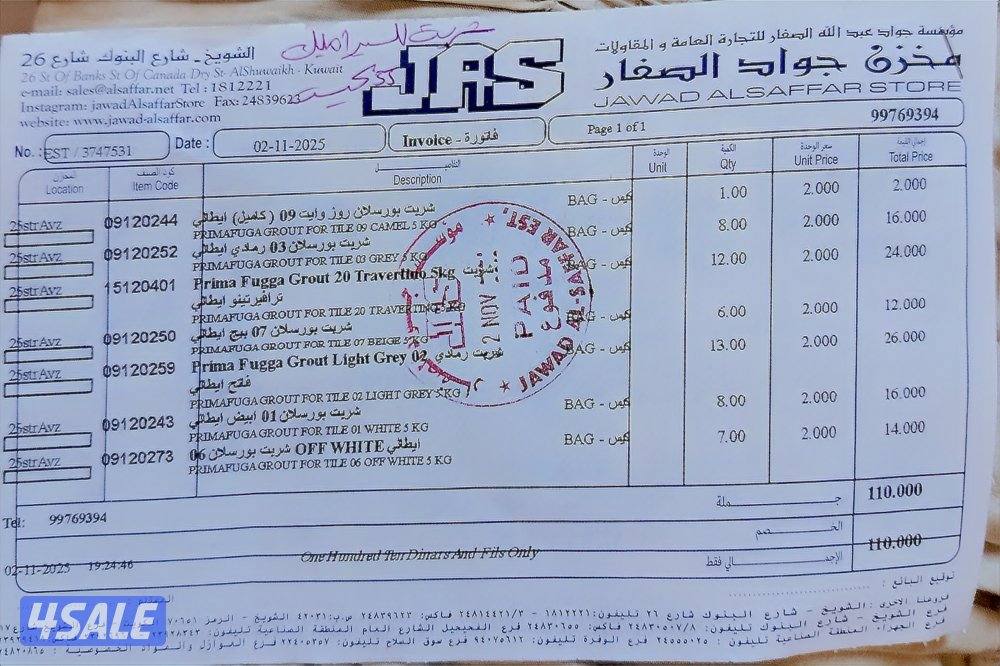 مؤسسة جواد عبد الله الصفار للتجارة العامة و المقاولات
مخزن جواد الصفار
JAWAD ALSAFFAR STORE
JAS
الشويخ - شارع البنوك شارع 26
26 St Of Banks St Of Canada Dry St- AlShuwaikh - Kuwait
e-mail: sales@alsaffar.net Tel : 1812221
Instagram: jawadAlsaffarStore Fax: 2483962
website: www.jawad-alsaffar.com
99769394
No. : EST / 3747531
Date : 02-11-2025
Invoice - فاتورة
Page 1 of 1
المخزن كود الصنف التفاصيل الوحدة الكمية سعر الوحدة إجمالي القيمة
Location Item Code Description Unit Qty Unit Price Total Price
25strAvz 09120244 شريت بورسلان روز وايت 09 ( كاميل) ايطالي BAG - كيس 1.00 2.000 2.000
PRIMAFUGA GROUT FOR TILE 09 CAMEL 5 KG
25strAvz 09120252 شريت بورسلان 03 رمادي ايطالي BAG - كيس 8.00 2.000 16.000
PRIMAFUGA GROUT FOR TILE 03 GREY 5 KG
25strAvz 15120401 Prima Fugga Grout 20 Travertino 5kg شريت BAG - كيس 12.00 2.000 24.000
ترافيرتينو ايطالي
PRIMAFUGA GROUT FOR TILE 20 TRAVERTINO 5 KG
25strAvz 09120250 شريت بورسلان 07 بيج ايطالي BAG - كيس 6.00 2.000 12.000
PRIMAFUGA GROUT FOR TILE 07 BEIGE 5 KG
25strAvz 09120259 Prima Fugga Grout Light Grey 02 شريت رمادي BAG - كيس 13.00 2.000 26.000
فاتح ايطالي
PRIMAFUGA GROUT FOR TILE 02 LIGHT GREY 5 KG
25strAvz 09120243 شريت بورسلان 01 ابيض ايطالي BAG - كيس 8.00 2.000 16.000
PRIMAFUGA GROUT FOR TILE 01 WHITE 5 KG
25strAvz 09120273 شريت بورسلان 06 OFF WHITE ايطالي BAG - كيس 7.00 2.000 14.000
PRIMAFUGA GROUT FOR TILE 06 OFF WHITE 5 KG
JAWAD AL-SAFFAR EST.
PAID
مدفوع
2 NOV
JAS
Tel: 99769394
جملة 110.000
الخصم
One Hundred Ten Dinars And Fils Only
الإجمالي فقط 110.000
02-11-2025 19:24:46
توقيع البائع :
فروعنا الاخرى : الشويخ - شارع البنوك شارع ٢٦ تليفون: ١٨١٢٢٢١ - ٢٤٨١٤٤٢١/٣ فاكس: ٢٤٨٣٩٦٢٣ ص.ب: ٤٢٠٣١ الشويخ - الرمز
4SALE